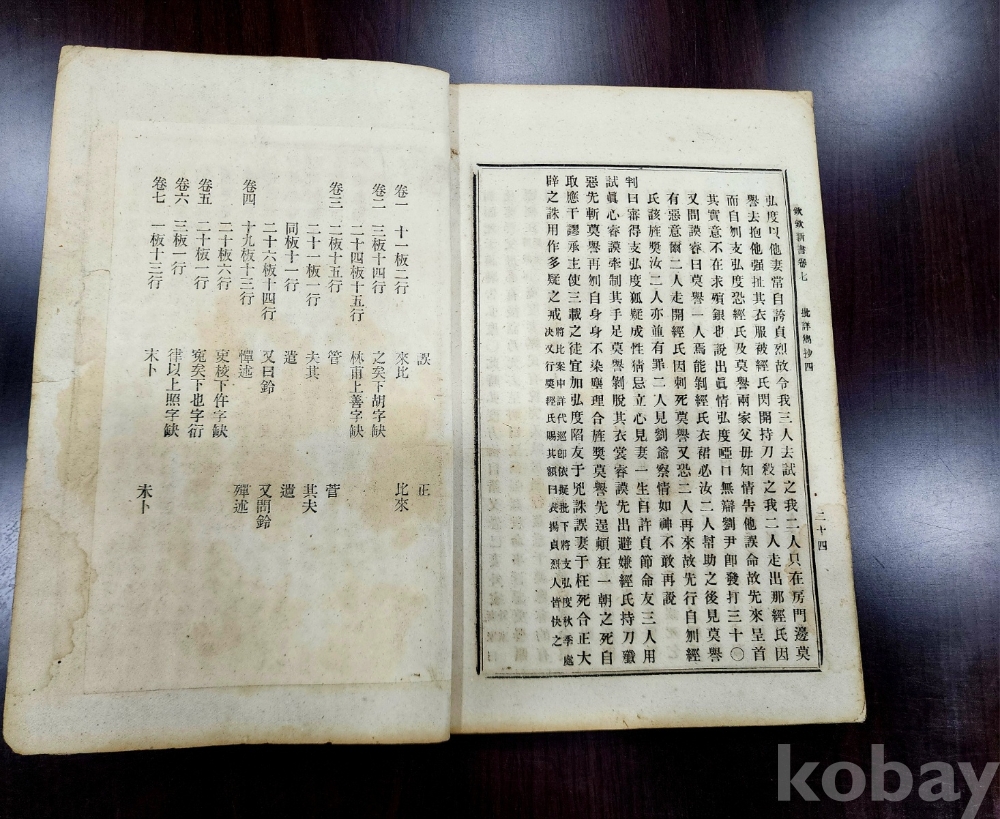 欽欽新書卷七 批詳雋抄四 二十四
弘度以他妻常自誇貞烈故令我三人去試之我二人只在房門邊莫
譽去抱他强扯其衣服被經氏閃開持刀殺之我二人走出那經氏因
而自刎支弘度恐經氏及莫譽兩家父母知情告他誤命故先來呈首
其實意不在求殯銀也說出眞情弘度啞口無辯劉尹卽發打三十○
又問謨睿曰莫譽一人焉能剝經氏衣裙必汝二人幫助之後見莫譽
有惡意爾二人走開經氏因刺死莫譽又恐二人再來故先行自刎經
氏該旌奬汝二人亦並有罪二人見劉爺察情如神不敢再說
判曰審得支弘度狐疑成性猜忌立心見妻一生自許貞節命友三人用
試眞心睿謨牽制其手足莫譽剝脫其衣裳睿謨先出避嫌經氏持刀殲
惡先斬莫譽再刎自身身不染塵理合旌奬莫譽先逞顚狂一朝之死自
取應干謬承主使三載之徒宜加弘度陷友于兇誅誤妻于枉死合正大
辟之誅用作多疑之戒 將此案申詳代巡卽依擬批下將支弘度秋季處決又行奬經氏賜其額曰表揚貞烈人皆快之
誤 正
卷一 十一板二行 來比 比來
卷二 三板十四行 之矣下胡字缺
二十四板十五行 林甫上善字缺
卷三 二板十五行 管 菅
二十一板一行 夫其 其夫
同板十一行 遣 遺
二十六板十四行 又曰鈴 又問鈴
卷四 十九板十三行 憚述 殫述
二十板六行 吏校下作字缺
卷五 二十板一行 冤矣下也字衍
卷六 三板一行 律以上照字缺
卷七 一板十三行 末卜 未卜
kobay